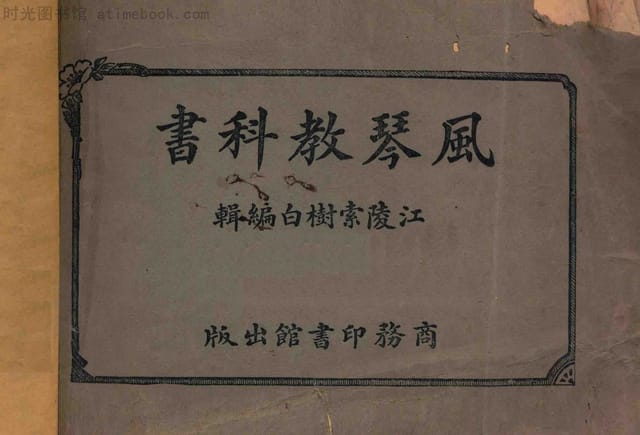 时光图书馆 atimebook.com
風琴教科書
江陵索樹白編輯
商務印書館出版